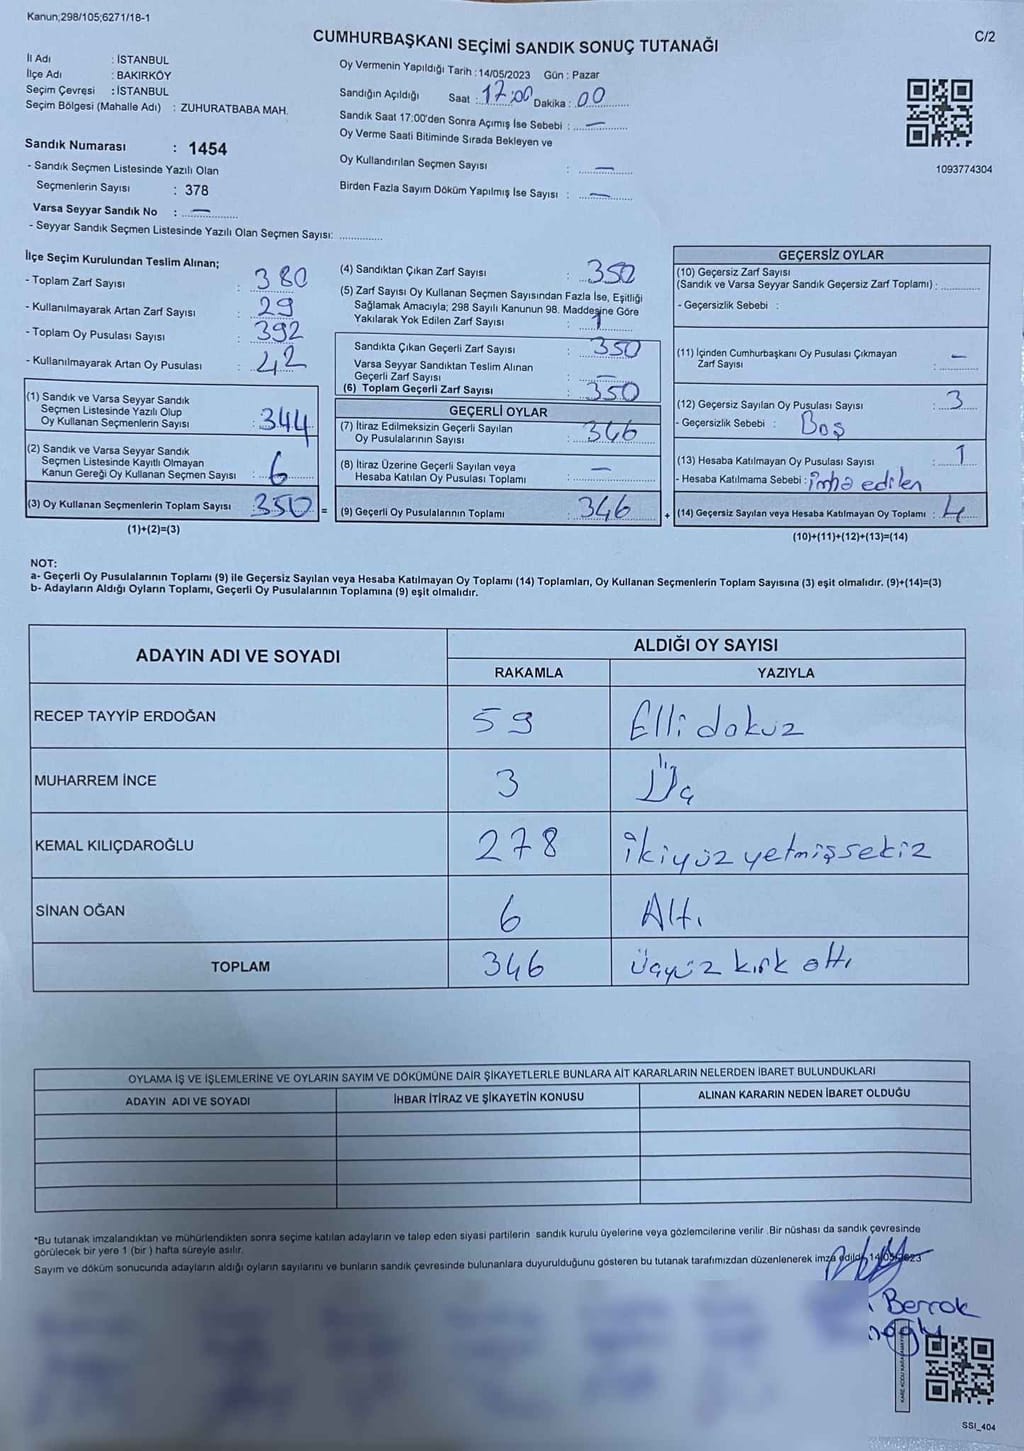 Kanun;298/105;6271/18-1
C/2
CUMHURBAŞKANI SEÇİMİ SANDIK SONUÇ TUTANAĞI
İl Adı : İSTANBUL
İlçe Adı : BAKIRKÖY
Seçim Çevresi : İSTANBUL
Seçim Bölgesi (Mahalle Adı) : ZUHURATBABA MAH.
Sandık Numarası : 1454
- Sandık Seçmen Listesinde Yazılı Olan
Seçmenlerin Sayısı : 378
Varsa Seyyar Sandık No : —
- Seyyar Sandık Seçmen Listesinde Yazılı Olan Seçmen Sayısı: ............
Oy Vermenin Yapıldığı Tarih : 14/05/2023 Gün : Pazar
Sandığın Açıldığı Saat : 17:00 Dakika : 00
Sandık Saat 17:00'den Sonra Açımış İse Sebebi : —
Oy Verme Saati Bitiminde Sırada Bekleyen ve
Oy Kullandırılan Seçmen Sayısı : —
Birden Fazla Sayım Döküm Yapılmış İse Sayısı : —
1093774304
İlçe Seçim Kurulundan Teslim Alınan;
- Toplam Zarf Sayısı : 380
- Kullanılmayarak Artan Zarf Sayısı : 29
- Toplam Oy Pusulası Sayısı : 392
- Kullanılmayarak Artan Oy Pusulası : 42
(1) Sandık ve Varsa Seyyar Sandık
Seçmen Listesinde Yazılı Olup
Oy Kullanan Seçmenlerin Sayısı : 344
(2) Sandık ve Varsa Seyyar Sandık
Seçmen Listesinde Kayıtlı Olmayan
Kanun Gereği Oy Kullanan Seçmen Sayısı : 6
(3) Oy Kullanan Seçmenlerin Toplam Sayısı : 350 =
(1)+(2)=(3)
(4) Sandıktan Çıkan Zarf Sayısı : 350
(5) Zarf Sayısı Oy Kullanan Seçmen Sayısından Fazla İse, Eşitliği
Sağlamak Amacıyla; 298 Sayılı Kanunun 98. Maddesine Göre
Yakılarak Yok Edilen Zarf Sayısı : 1
Sandıkta Çıkan Geçerli Zarf Sayısı : 350
Varsa Seyyar Sandıktan Teslim Alınan
Geçerli Zarf Sayısı : —
(6) Toplam Geçerli Zarf Sayısı : 350
GEÇERLİ OYLAR
(7) İtiraz Edilmeksizin Geçerli Sayılan
Oy Pusulalarının Sayısı : 346
(8) İtiraz Üzerine Geçerli Sayılan veya
Hesaba Katılan Oy Pusulası Toplamı : —
(9) Geçerli Oy Pusulalarının Toplamı : 346 +
GEÇERSİZ OYLAR
(10) Geçersiz Zarf Sayısı
(Sandık ve Varsa Seyyar Sandık Geçersiz Zarf Toplamı) : ............
- Geçersizlik Sebebi :
(11) İçinden Cumhurbaşkanı Oy Pusulası Çıkmayan
Zarf Sayısı : —
(12) Geçersiz Sayılan Oy Pusulası Sayısı : 3
- Geçersizlik Sebebi : Boş
(13) Hesaba Katılmayan Oy Pusulası Sayısı : 1
- Hesaba Katılmama Sebebi : imha edilen
(14) Geçersiz Sayılan veya Hesaba Katılmayan Oy Toplamı : 4
(10)+(11)+(12)+(13)=(14)
NOT:
a- Geçerli Oy Pusulalarının Toplamı (9) ile Geçersiz Sayılan veya Hesaba Katılmayan Oy Toplamı (14) Toplamları, Oy Kullanan Seçmenlerin Toplam Sayısına (3) eşit olmalıdır. (9)+(14)=(3)
b- Adayların Aldığı Oyların Toplamı, Geçerli Oy Pusulalarının Toplamına (9) eşit olmalıdır.
ADAYIN ADI VE SOYADI
ALDIĞI OY SAYISI
RAKAMLA YAZIYLA
RECEP TAYYİP ERDOĞAN 59 Elli dokuz
MUHARREM İNCE 3 Üç
KEMAL KILIÇDAROĞLU 278 ikiyüz yetmişsekiz
SİNAN OĞAN 6 Altı
TOPLAM 346 üçyüz kırk altı
OYLAMA İŞ VE İŞLEMLERİNE VE OYLARIN SAYIM VE DÖKÜMÜNE DAİR ŞİKAYETLERLE BUNLARA AİT KARARLARIN NELERDEN İBARET BULUNDUKLARI
ADAYIN ADI VE SOYADI İHBAR İTİRAZ VE ŞİKAYETİN KONUSU ALINAN KARARIN NEDEN İBARET OLDUĞU
*Bu tutanak imzalandıktan ve mühürlendikten sonra seçime katılan adayların ve talep eden siyasi partilerin sandık kurulu üyelerine veya gözlemcilerine verilir .Bir nüshası da sandık çevresinde
görülecek bir yere 1 (bir ) hafta süreyle asılır.
Sayım ve döküm sonucunda adayların aldığı oyların sayılarını ve bunların sandık çevresinde bulunanlara duyurulduğunu gösteren bu tutanak tarafımızdan düzenlenerek imza edildi. 14/05/2023
Berrak
SSI_404